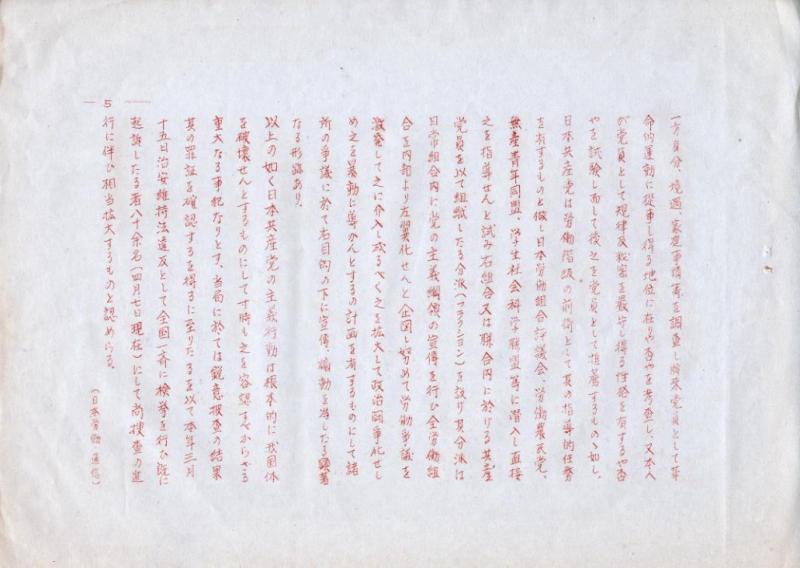 一方身分、境遇、家庭事情等を調査し将来党員として革
命的運動に従事し得る地位に在りや否やを考査し、又本人
が党員として規律及秘密を厳守し得る性格を有するや否
やを試験し而して後之を党員として推薦するものゝ如し。
日本共産党は労働階級の前衛として其の指導的任務
を有するものと做し日本労働組合評議会、労働農民党、
無産青年同盟、学生社会科学聯盟等に潜入し直接
之を指導せんと試み右組合又は聯合内に於ける共産
党員を以て組織したる分派(フラクション)を設け其分派は
日常組合内に党の主義綱領の宣傳を行ひ全労働組
合を内部より左翼化せんと企図し始めて労働争議を
激発して之に介入し成るべく之を拡大して政治闘争化せし
め之を暴動に導かんとするの計画を有するものにして諸
所の争議に於て右目的の下に宣傳、煽動を為したる顕著
なる形跡あり。
以上の如く日本共産党の主義行動は根本的に我国体
を破壊せんとするものにして寸時も之を容認すべからざる
重大なる事犯なりとす、当局に於ては鋭意捜査の結果
其の罪証を確認するを得るに至りたるを以て本年三月
十五日治安維持法違反として全国一斉に検挙を行ひ既に
起訴したる者八十余名(四月七日現在)にして尚捜査の進
行に伴ひ相当拡大するものと認めらる。
(日本労働通信)
— 5 —